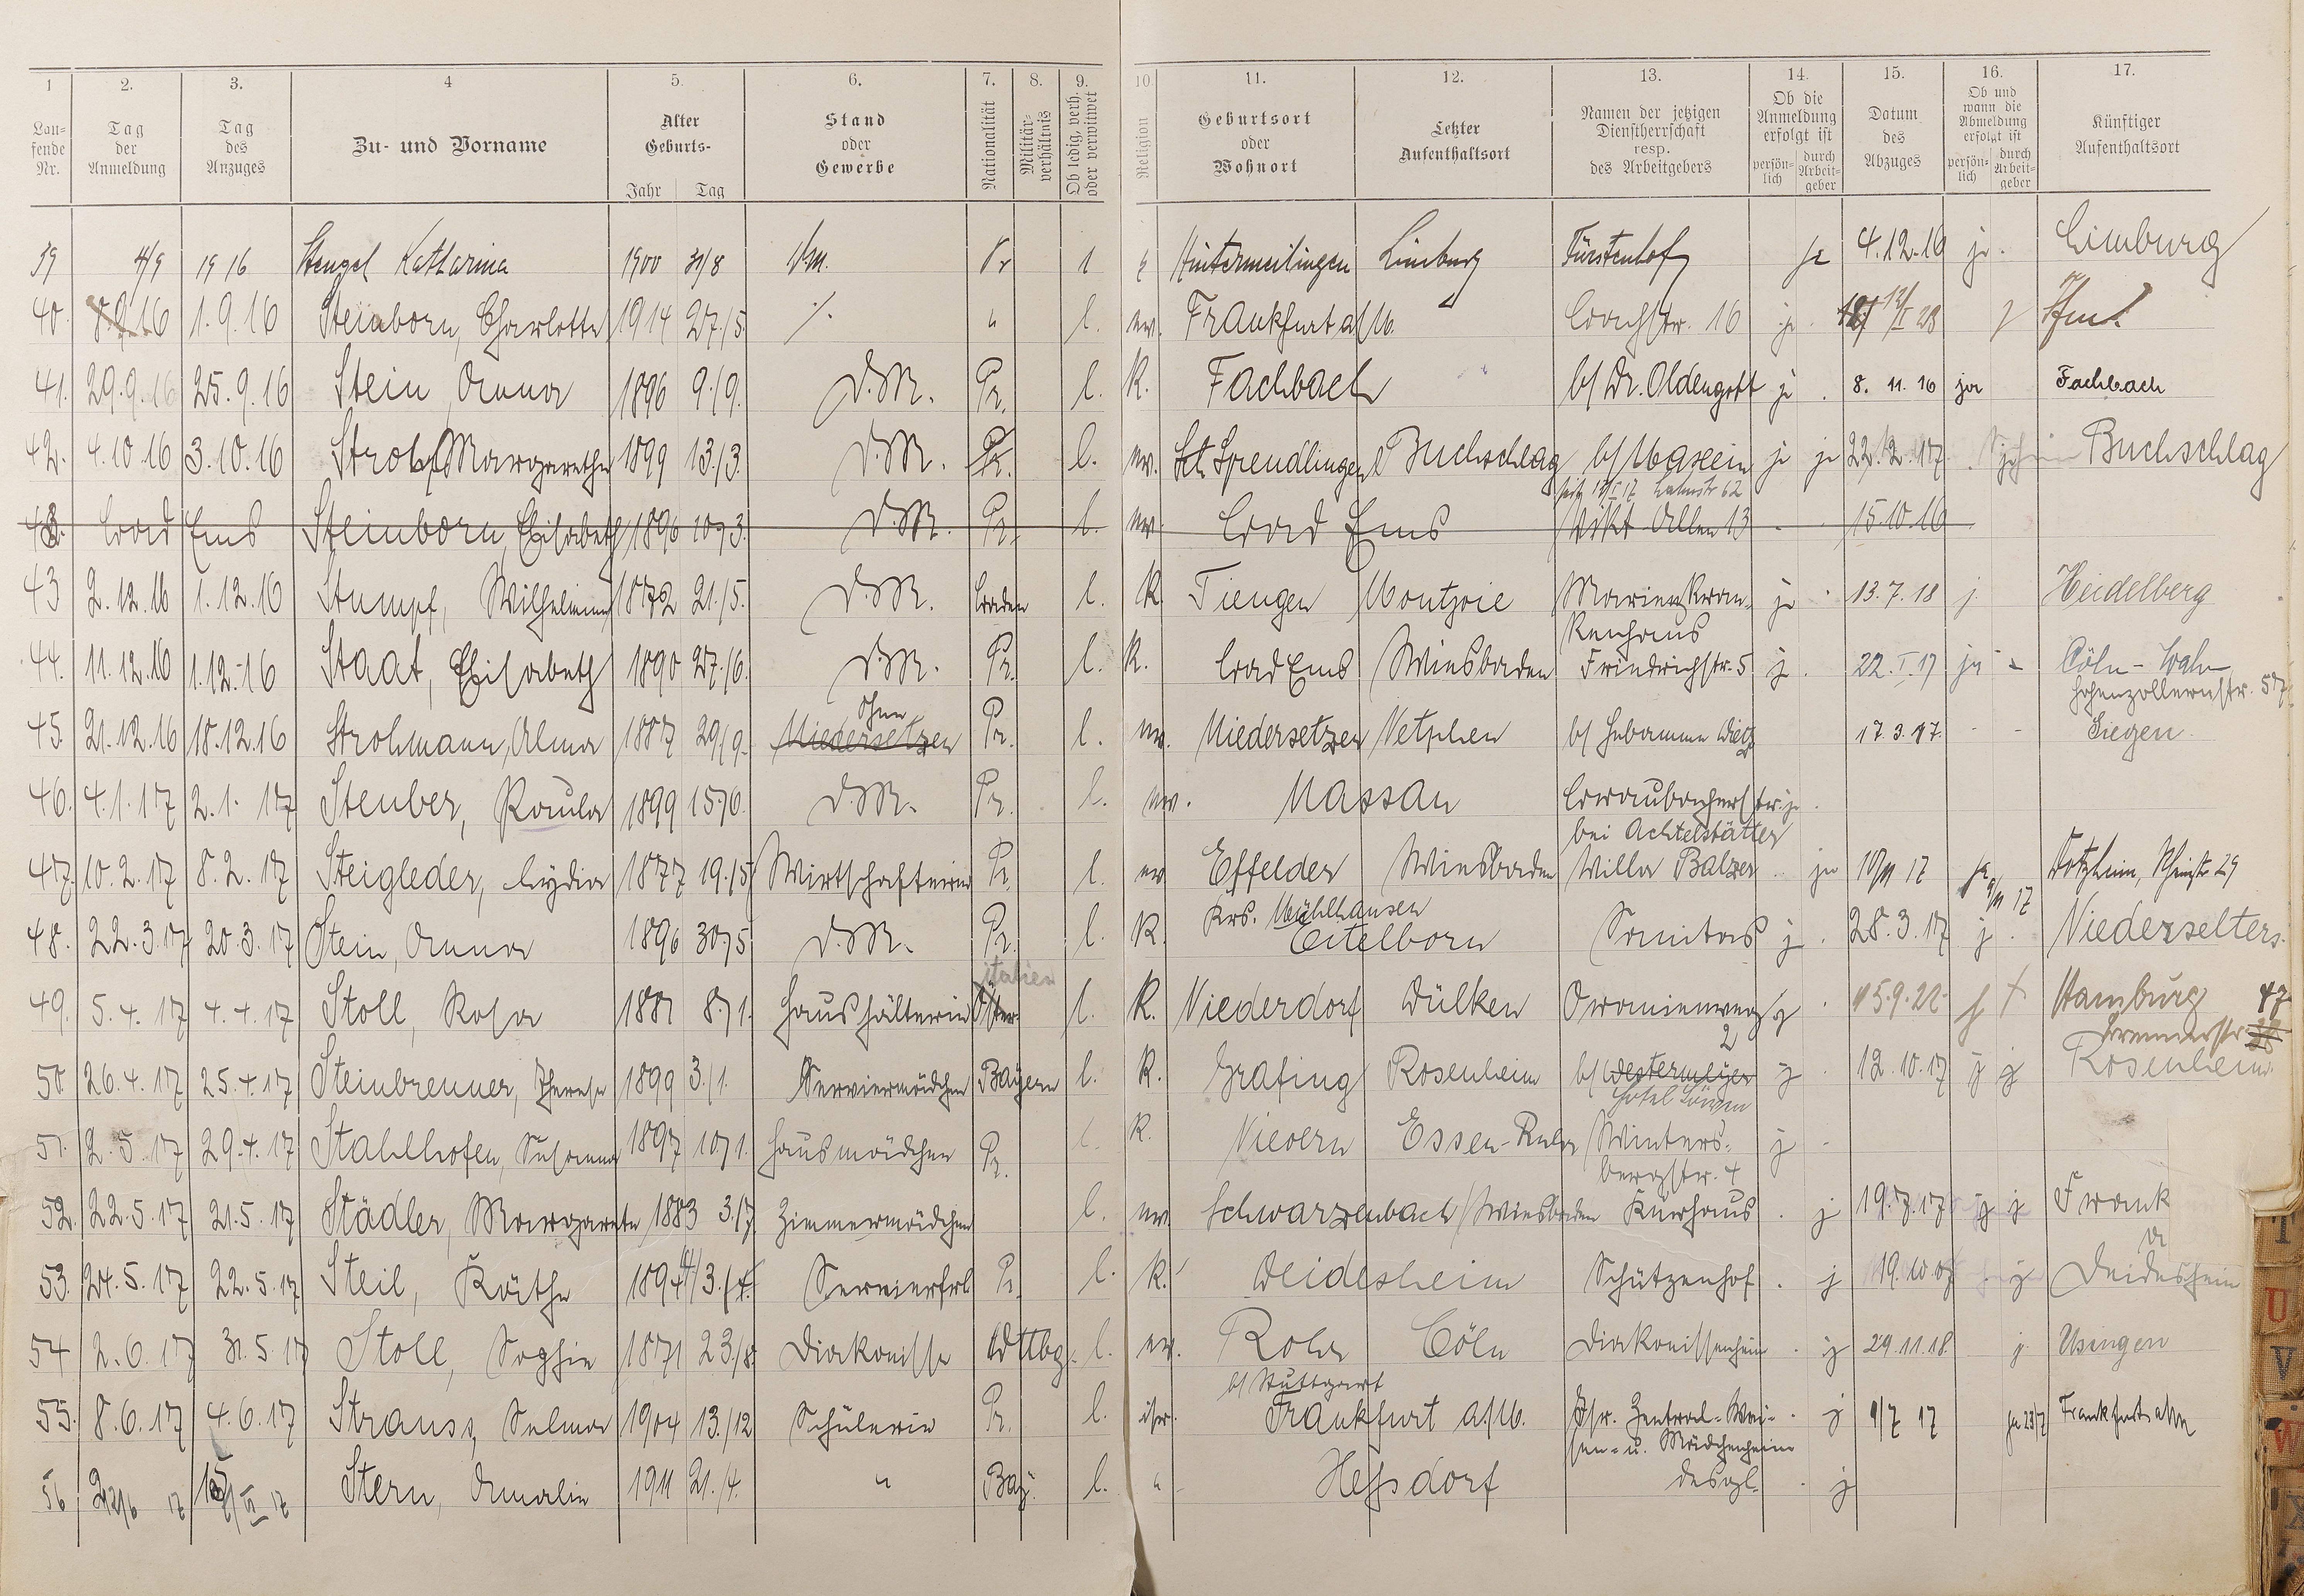 1 2. 3. 4 5. 6. 7. 8. 9. 10. 11. 12. 13. 14. 15. 16. 17.
Lau-fende Nr. Tag der Anmeldung Tag des Anzuges Zu- und Vorname Alter Geburts- Jahr Tag Stand oder Gewerbe Nationalität Militär-verhältnis Ob ledig, verh. oder verwitwet Religion Geburtsort oder Wohnort Letzter Aufenthaltsort Namen der jetzigen Dienstherrschaft resp. des Arbeitgebers Ob die Anmeldung erfolgt ist persön-lich durch Arbeit-geber Datum des Abzuges Ob und wann die Abmeldung erfolgt ist persön-lich durch Arbeit-geber Künftiger Aufenthaltsort
39 4/9 1916 Stengel Katharina 1900 31/8 Pr l Hintermeilingen Limburg Fürstenhof ja 4.12.16 ja. Limburg
40. 8.9.16 1.9.16 Steinborn, Charlotte 1914 27./5. /. " l. ev. Frankfurt a/M. Bachstr. 16 ja.
41. 29.9.16 25.9.16 Stein, Anna 1896 9./9. D.M. Pr. l. K. Fachbach b/ Dr. Oldengott j. 8.11.16 ja Fachbach
42. 4.10.16 3.10.16 Strobl, Margarethe 1899 13./3. D.M. Pr. l. ev. Sprendlingen Buchschlag b/ Maxein j. ja 22.2.17 Buchschlag
seit Lahnstr 62
43. Bad Ems Steinborn, Elisabeth 1896 10./3. D.M. Pr. l. ev. Bad Ems Vikt. Allee 13 15.10.16
43 2.12.16 1.12.16 Stumpf, Wilhelmine 1872 21./5. D.M. Baden l. K. Tiengen Montjoie Marienkran- ja 13.7.18 j. Heidelberg
kenhaus
44. 11.12.16 1.12.16 Staat, Elisabeth 1890 27./6. D.M. Pr. l. K. Bad Ems Wiesbaden Friedrichstr. 5 j. 22.I.17 ja - Cöln-
Hohenzollernstr. 57
45. 21.12.16 18.12.16 Strohmann, Alma 1887 29/9. Niedersetzen Ohne Pr. l. ev. Niedersetzen Netphen b/ Hebamme Dietz 17.3.17. - - Siegen.
46. 4.1.17 2.1.17 Steuber, Paula 1899 15./6. D.M. Pr. l. ev. Nassau Braubacherstr. ja
bei Achtelstätter
47. 10.2.17 8.2.17 Steigleder, Lydia 1877 19./5 Wirtschafterin Pr. l. ev Effelder Wiesbaden Villa Balzer ja 10/11 17 ja 9/11 17 Dotzheim, Rheinstr. 29
Krs. Mühlhausen
48. 22.3.17 20.3.17 Stein, Anna 1896 30./5 D.M. Pr. l. K. Eitelborn Sanitas j. 28.3.17 j. Niederselters.
italien
49. 5.4.17 4.4.17 Stoll, Rosa 1881 8./1. Haushälterin Öster. l. K. Niederdorf Dülken Oranienweg j 15.9.22 Hamburg 47
2
50 26.4.17 25.4.17 Steinbrenner, Therese 1899 3./1. Serviermädchen Bayern l. K. Grafing Rosenheim b/ Westermeier j 12.10.17 j j Rosenheim.
Hotel Löwen
51. 2.5.17 29.4.17 Stahlhofen, Susanna 1897 10./1. Hausmädchen Pr. l. K. Nievern Essen-Ruhr Winters- j -
bergstr. 4
52. 22.5.17 21.5.17 Städler, Margarete 1883 3./7. Zimmermädchen l. ev. Schwarzenbach Wiesbaden Kurhaus . j 19.7.17 j j Frank
53. 24.5.17 22.5.17 Steil, Käthe 1894 Servierfrl Pr. l. K. Deidesheim Schützenhof . j 19.10.17 j Deidesheim
54 2.6.17 31.5.17 Stoll, Sophie 1871 23./8. Diakonisse Wttbg. l. ev. Rohr Cöln Diakonissenheim . j 29.11.18. j. Usingen
b/ Stuttgart
55. 8.6.17 4.6.17 Strauss, Selma 1904 13./12 Schülerin Pr. l. isr. Frankfurt a./M. Isr. Zentral-Wai- . j 1/7 17 ja 23/7 Frankfurt a/M
sen- u. Mädchenheim
56 17 17 Stern, Amalie 1911 21./4. " Bay. l. " Heßdorf desgl. . j